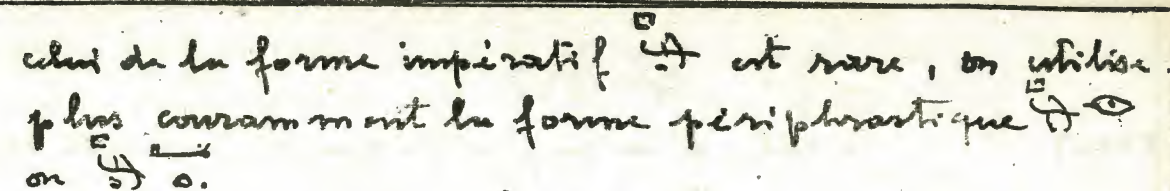 celui de la forme impératif est rare, on utilise
plus couramment la forme périphrastique
on